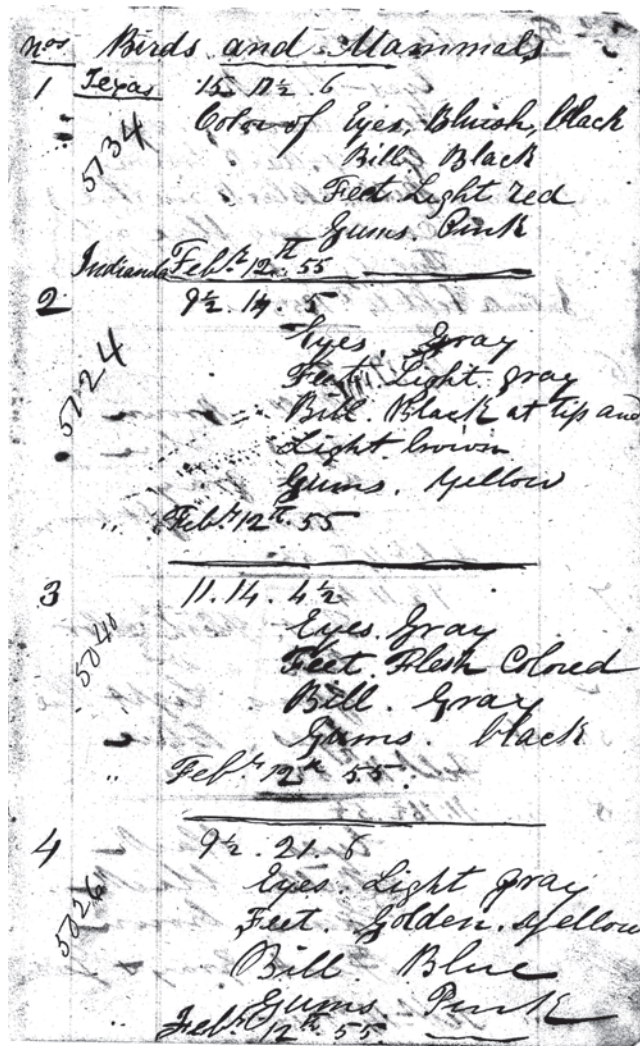 nos Birds and Mammals
1 Texas 15. 17½ 6
Color of Eyes, Bluish, black
5134
Bill. Black
Feet. Light red
Gums. Pink
Indianola Feb.r 12th. 55
2 9½. 14. 5
Eyes. Gray
5124
Feet. Light. gray
Bill. Black at tip and
Light. brown
Gums. Yellow
" Feb.r 12th 55
3 11. 14. 4½
Eyes. Gray
5040
Feet. Flesh Colored
Bill. Gray
Gums. black
" Feb.r 12th 55.
4 9½. 21. 6
Eyes. Light gray
5026
Feet. Golden. yellow
Bill. Blue
Gums. Pink
" Feb.r 12th 55.